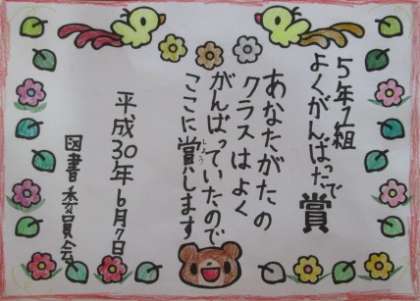 5年1組
よくがんばったで賞
あなたがたの
クラスはよく
がんばっていたので
ここに賞します
平成30年6月7日
図書委員会